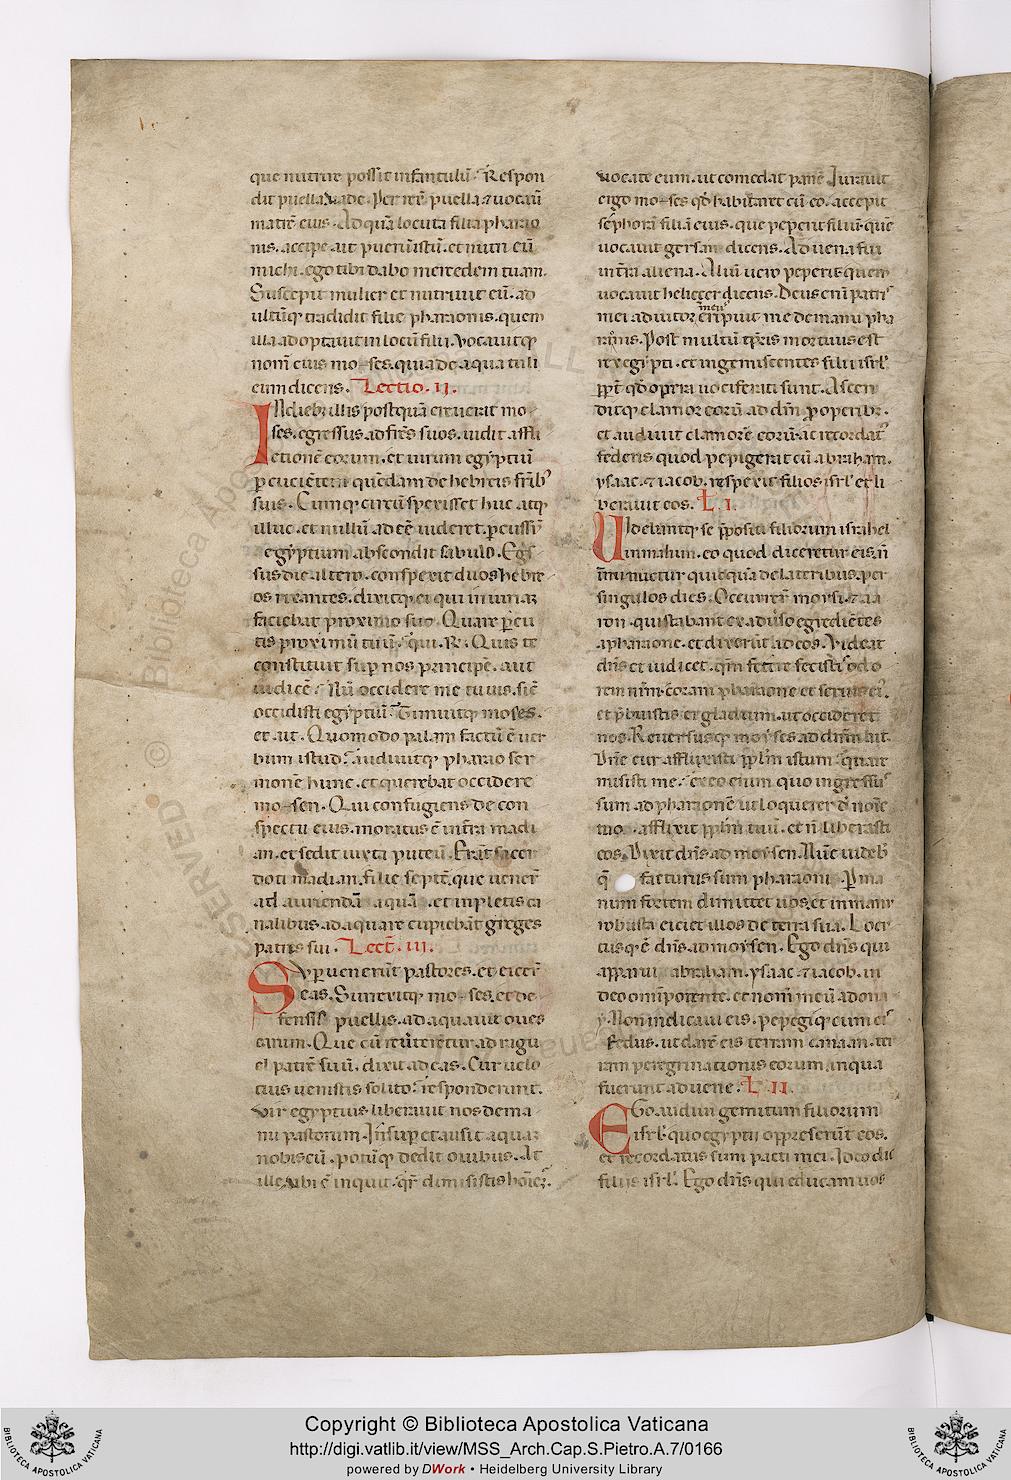 que nutrire possit infantulū. Respon
dit puella. Vade. Perrexit puella ⁊ uocauit
matrē eius. Ad quā locuta filia pharao
nis. accipe ait puerū istū. et nutri eū
michi. ego tibi dabo mercedem tuam.
Suscepit mulier et nutriuit eū. ad
ultūq; tradidit filie pharaonis. quem
illa adoptauit in locū filii. Vocauitq;
nomē eius moyses. quia de aqua tuli
eum dicens. Lectio. II.
In diebus illis postquā creuerat mo
ses. egressus ad fr̄es suos. uidit affli
ctionē eorum. et uirum egyptiū
percucientem quēdam de hebreis frib;
suis. Cumq; circūspexisset huc atq;
illuc. et nullū adeē uideret. percussū
egyptium abscondit sabulo. Egs
sus die altero. conspexit duos hebre
os rixantes. dixitq; ei qui iniuriā
faciebat proximo suo. Quare percu
tis proximū tuū. qui. R. Quis te
constituit sup nos principē. aut
iudicē. Nū occidere me tu uis. sic
occidisti egyptiū. Timuitq; moses.
et ait. Quomodo palam factū ē uer
bum istud. audiuitq; pharao ser
monē hunc. et querebat occidere
moysen. Qui confugiens de con
spectu eius. moratus ē in terra madi
an. et sedit iuxta puteū. Erant sacer
doti madian. filie septē. que uenerūt
ad auriendā aquā. et inpletis ca
nalibus. adaquare cupiebāt greges
patris sui. Lect. III.
Supuenerūt pastores. et eiecer
eas. Surrexitq; moyses. et de
fensis puellis. adaquauit oues
earum. Que cū reuterētur ad rigu
el patrē suū. dixit ad eas. Cur uelo
cius uenistis solito. responderunt.
Vir egyptius liberauit nos de ma
nu pastorum. Insup et ausit aquā
nobiscū. potūq; dedit ouibus. At
ille. ubi ē inquit. qr̄ dimisistis hoīem.
uocate eum. ut comedat panē. Iurauit
ergo moyses qd habitaret cū eo. accepit
sephorā filiā eius. que peperit filiū. quē
uocauit gersan dicens. Aduena fui
in terra aliena. Aliū uero peperit. quem
uocauit heliezer dicens. Deus enī patris
mei adiutor meus eripuit me de manu pha
raonis. Post multū tp̄ris mortuus est
rex egypti. et ingemiscentes filii isrl
ppt̄ opera uociferati sunt. Ascen
ditq; clamor eorū ad dm̄ pro operib;.
et audiuit clamorē eorū. ac recordat
federis quod pepigerat cū abraham.
ysaac. ⁊ iacob. respexit filios isrl et li
berauit eos. L. I.
Videbantq; se ppositi filiorum israhel
in malum. eo quod diceretur eis. n̄
minuetur quicquā de lateribus. per
singulos dies. Occurrerūt moysi. ⁊ aa
ron. qui stabant ex aduerso egrediētes
a pharaone. et dixerūt ad eos. Videat
dn̄s et iudicet. qm̄ fetere fecistis odo
rem nr̄m. coram pharaone et seruis ei.
et p̄buistis ei gladium. ut occideret
nos. Reuersusq; moyses ad dnm̄ ait.
Dn̄e cur afflixisti pplm̄ istum. quare
misisti me. ex eo enim quo ingressus
sum ad pharaonē ut loquerer in noīe
tuo. afflixit pplm̄ tuū. et n̄ liberasti
eos. Dixit dn̄s ad moysen. Nūc uideb
q̄ facturus sum pharaoni. Per ma
num fortem dimittet uos. et in manu
robusta eiciet illos de terra sua. Locu
tusq; ē dn̄s ad moysen. Ego dn̄s qui
apparui abraham. ysaac. ⁊ iacob. in
deo omīpotente. et nomē meū adona
y. Non indicaui eis. pepegiq; cum eis
fedus. ut darē eis terram canaan. ter
ram peregrinationis eorum. in qua
fuerunt aduene. L. II.
Ego audiui gemitum filiorum
isrl. quo egyptii oppreserūt eos.
et recordatus sum pacti mei. Ideo dic
filiis isrl. Ego dn̄s qui educam uos
Copyright © Biblioteca Apostolica Vaticana
http://digi.vatlib.it/view/MSS_Arch.Cap.S.Pietro.A.7/0166
powered by DWork • Heidelberg University Library
BIBLIOTECA APOSTOLICA VATICANA
BIBLIOTECA APOSTOLICA VATICANA